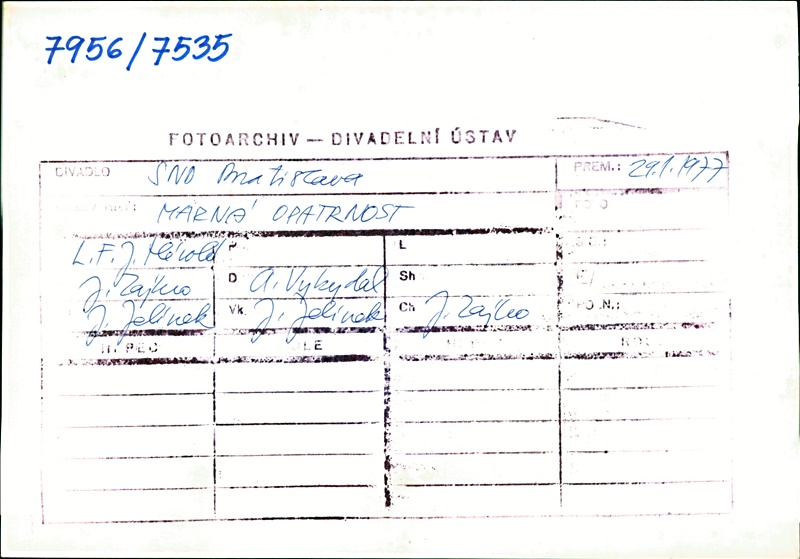 7956/7535
FOTOARCHIV — DIVADELNÍ ÚSTAV
DIVADLO SND Bratislava PREM.: 29.1.1977
MARNÁ OPATRNOST
L.F.J. Hérold P L
J. Zajko D A. Vykydal Sh
J. Jelínek Vk. J. Jelínek Ch J. Zajko